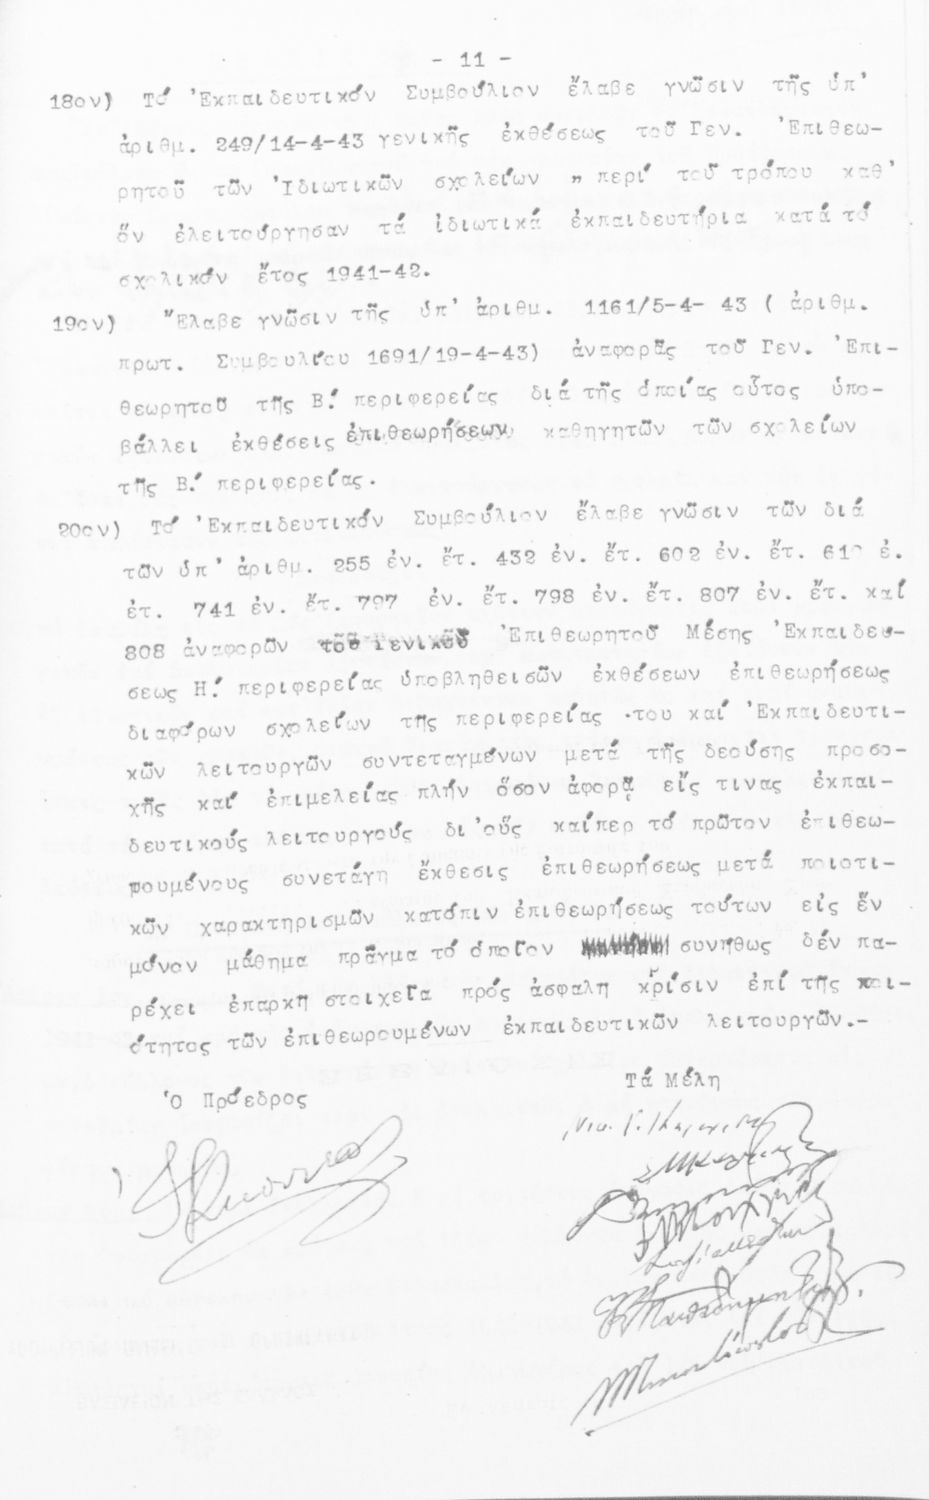 - 11 -
18ον) Τό Ἐκπαιδευτικόν Συμβούλιον ἔλαβε γνῶσιν τῆς ὑπ'
ἀριθμ. 249/14-4-43 γενικῆς ἐκθέσεως τοῦ Γεν. Ἐπιθεω-
ρητοῦ τῶν Ἰδιωτικῶν σχολείων " περί τοῦ τρόπου καθ'
ὅν ἐλειτούργησαν τά ἰδιωτικά ἐκπαιδευτήρια κατά τό
σχολικόν ἔτος 1941-42.
19ον) Ἔλαβε γνῶσιν τῆς ὑπ' ἀριθμ. 1161/5-4- 43 ( ἀριθμ.
πρωτ. Συμβουλίου 1691/19-4-43) ἀναφορᾶς τοῦ Γεν. Ἐπι-
θεωρητοῦ τῆς Β.' περιφερείας διά τῆς ὁποίας οὗτος ὑπο-
βάλλει ἐκθέσεις ἐπιθεωρήσεων καθηγητῶν τῶν σχολείων
τῆς Β.' περιφερείας.
20ον) Τό Ἐκπαιδευτικόν Συμβούλιον ἔλαβε γνῶσιν τῶν διά
τῶν ὑπ' ἀριθμ. 255 ἐν. ἔτ. 432 ἐν. ἔτ. 602 ἐν. ἔτ. ἐ.
ἐτ. 741 ἐν. ἔτ. 797 ἐν. ἔτ. 798 ἐν. ἔτ. 807 ἐν. ἔτ. καί
808 ἀναφορῶν τοῦ Γενικοῦ Ἐπιθεωρητοῦ Μέσης Ἐκπαιδευ-
σεως Η.' περιφερείας ὑποβληθεισῶν ἐκθέσεων ἐπιθεωρήσεως
διαφόρων σχολείων τῆς περιφερείας του καί Ἐκπαιδευτι-
κῶν λειτουργῶν συντεταγμένων μετά τῆς δεούσης προσο-
χῆς καί ἐπιμελείας πλήν ὅσον ἀφορᾷ εἴς τινας ἐκπαι-
δευτικούς λειτουργούς δι'οὕς καίπερ τό πρῶτον ἐπιθεω-
ρουμένους συνετάγη ἔκθεσις ἐπιθεωρήσεως μετά ποιοτι-
κῶν χαρακτηρισμῶν κατόπιν ἐπιθεωρήσεως τούτων εἰς ἕν
μόνον μάθημα πρᾶγμα τό ὁποῖον συνήθως δέν πα-
ρέχει ἐπαρκῆ στοιχεῖα πρός ἀσφαλῆ κρίσιν ἐπί τῆς ποι-
ότητος τῶν ἐπιθεωρουμένων ἐκπαιδευτικῶν λειτουργῶν.-
Τά Μέλη
Ὁ Πρόεδρος